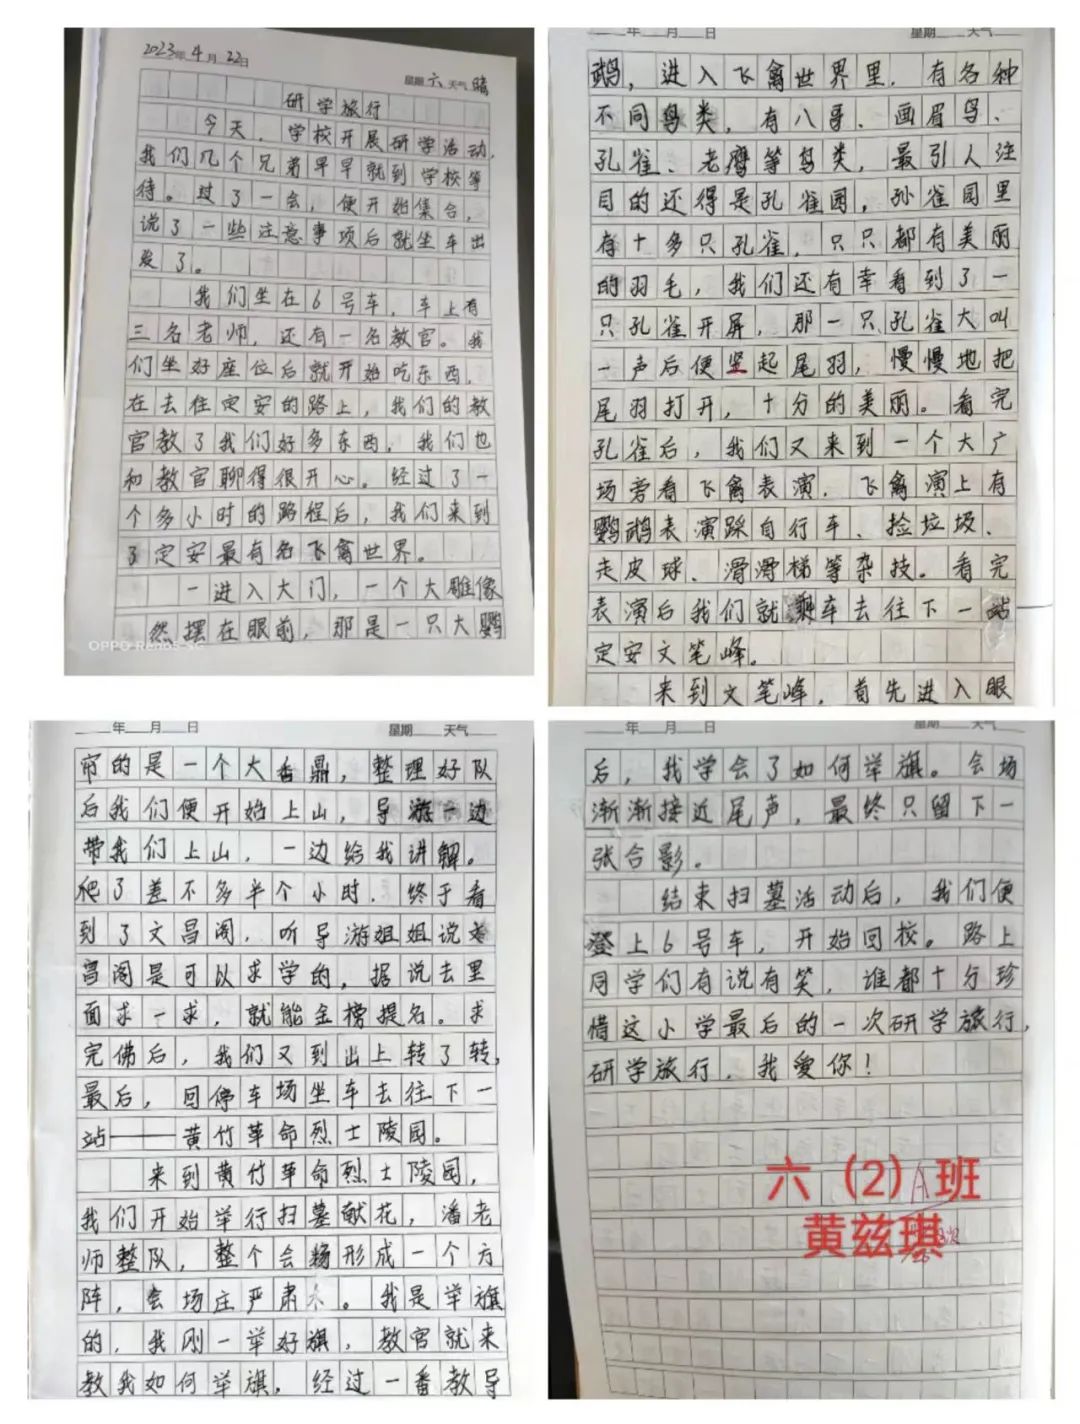 2023年4月22日
星期六天气晴
研学旅行
今天，学校开展研学活动，
我们几个兄弟早早就到学校等
待。过了一会，便开始集合，
说了一些注意事项后就坐车出
发了。
我们坐在6号车，车上有
三名老师，还有一名教官。我
们坐好座位后就开始吃东西，
在去往定安的路上，我们的教
官教了我们好多东西，我们也
和教官聊得很开心。经过了一
个多小时的路程后，我们来到
了定安最有名飞禽世界。
一进入大门，一个大雕像
然摆在眼前，那是一只大鹦
OPPO Reno5 5G
年 月 日
星期 天气
鹉，进入飞禽世界里，有各种
不同鸟类，有八哥、画眉鸟、
孔雀、老鹰等鸟类，最引人注
目的还得是孔雀园，孙雀园里
存十多只孔雀，只只都有美丽
的羽毛，我们还有幸看到了一
只孔雀开屏，那一只孔雀大叫
一声后便竖起尾羽，慢慢地把
尾羽打开，十分的美丽。看完
孔雀后，我们又来到一个大广
场旁看飞禽表演，飞禽演上有
鹦鹉表演踩自行车、捡垃圾、
走皮球、滑滑梯等杂技。看完
表演后我们就乘车去往下一站
定安文笔峰。
来到文笔峰，首先进入眼
年 月 日
星期 天气
帘的是一个大香鼎，整理好队
后我们便开始上山，导游一边
带我们上山，一边给我讲解。
爬了差不多半个小时，终于看
到了文昌阁，听导游姐姐说文
昌阁是可以求学的，据说去里
面求一求，就能金榜提名。求
完佛后，我们又到出上转了转，
最后，回停车场坐车去往下一
站——黄竹革命烈士陵园。
来到黄竹革命烈士陵园，
我们开始举行扫墓献花，潘老
师整队，整个会场形成一个方
阵，会场庄严肃。我是举旗
的，我刚一举好旗，教官就来
教我如何举旗，经过一番教导
年 月 日
星期 天气
后，我学会了如何举旗。会场
渐渐接近尾声，最终只留下一
张合影。
结束扫墓活动后，我们便
登上6号车，开始回校。路上
同学们有说有笑，谁都十分珍
惜这小学最后的一次研学旅行，
研学旅行，我爱你！
六（2）A班
黄兹琪